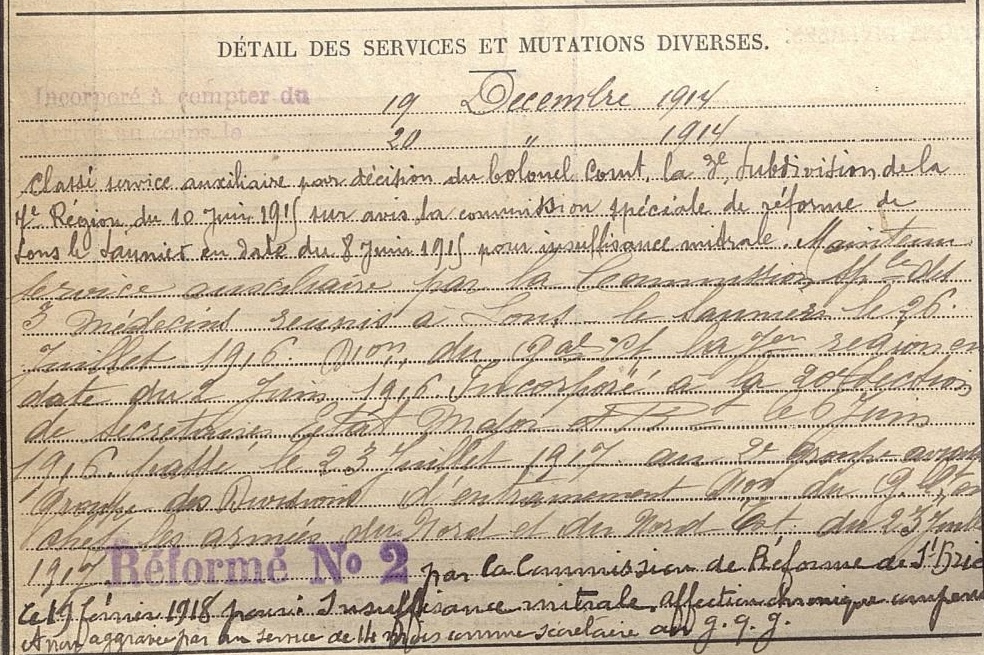 DÉTAIL DES SERVICES ET MUTATIONS DIVERSES.
Incorporé à compter du 19 Décembre 1914
Arrivé au corps le 20 " 1914
Classé service auxiliaire par décision du Colonel Comt. la 3e Subdivision de la
7e Région, du 10 Juin 1915 sur avis la commission spéciale de réforme de
Lons le Saunier en date du 8 Juin 1915 pour insuffisance mitrale. Maintenu
service auxiliaire par la Commission Sple des
3 médecins réunis à Lons le Saunier le 26
Juillet 1916. Don du Gal Ct la 7e région en
date du 2 Juin 1916. Incorporé à la 20e Section
de secrétaires Etat Major le 6 Juin
1916. Passé le 23 Juillet 1917 au 2e Groupe
Groupe des Divisions d'entrainement Don du G. Ct en
chef les armées du Nord et du Nord Est du 23 Juillet
1917 Réformé No 2 par la Commission de Réforme de St Brieuc
le 19 février 1918 pour: Insuffisance mitrale, affection chronique
non aggravée par un service de 14 mois comme secrétaire au g. q. g.